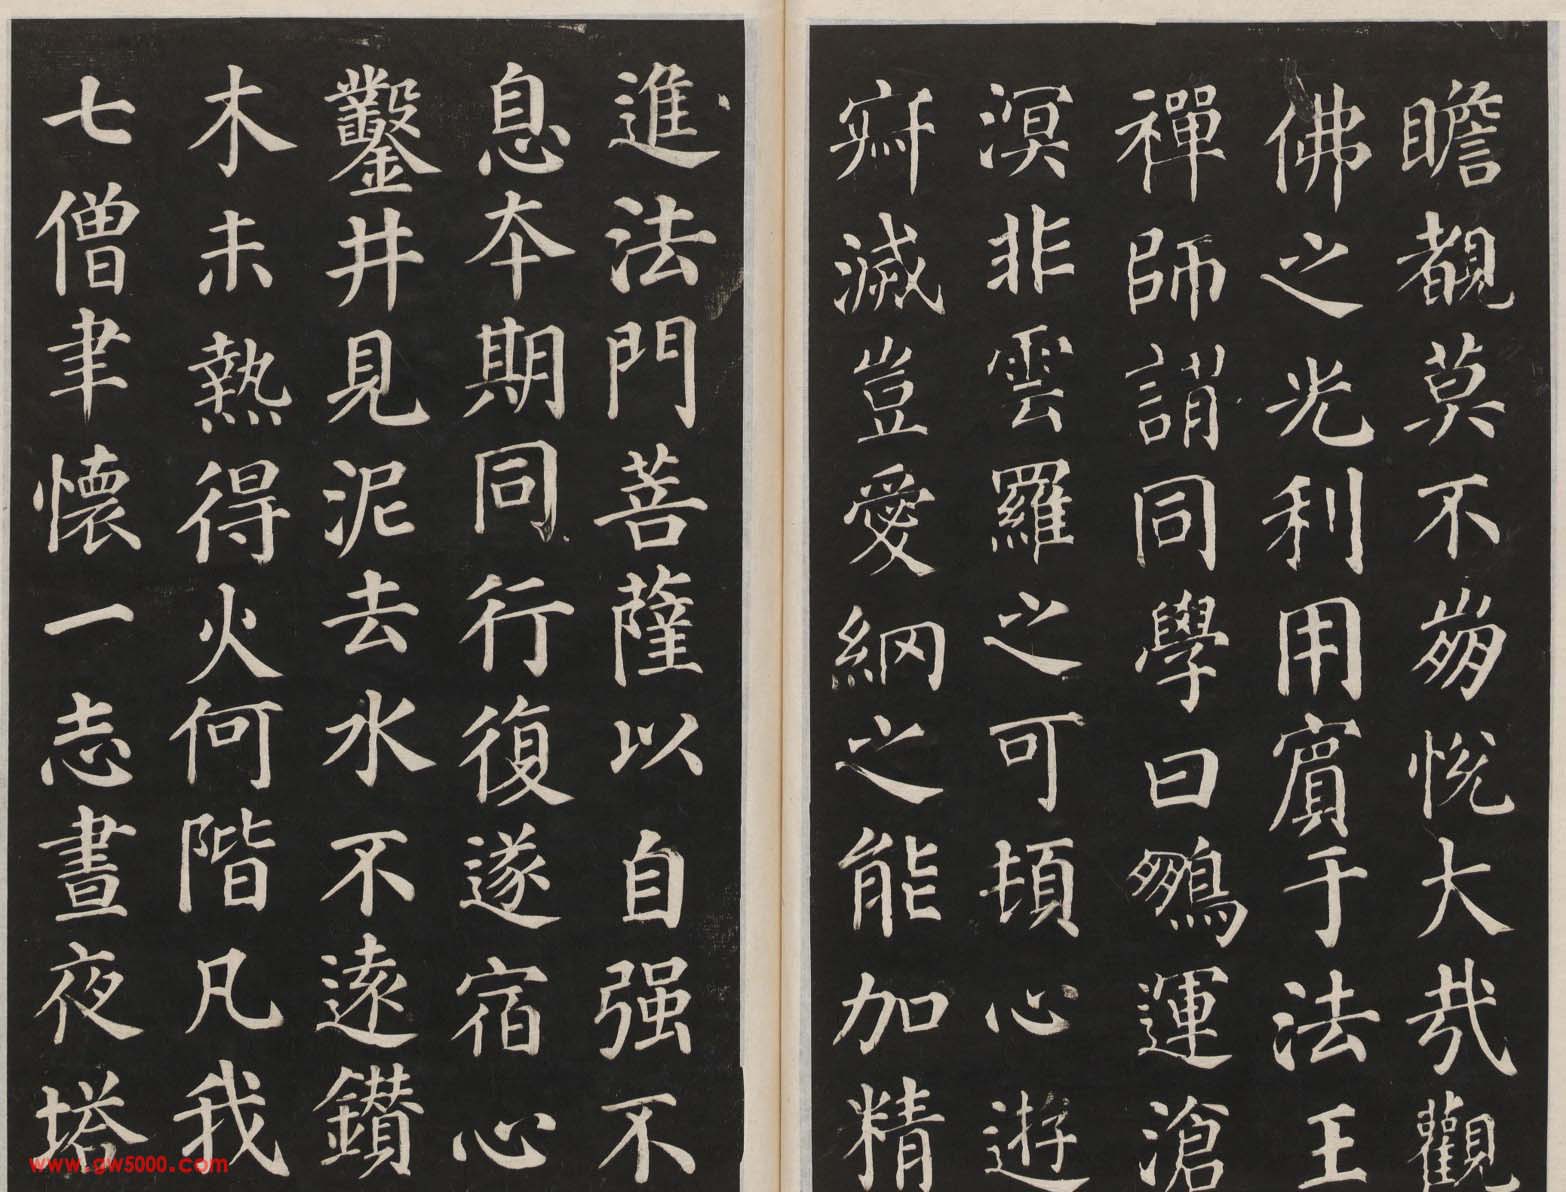 瞻覩莫不崩悅大哉觀
佛之光利用賓于法王
禪師謂同學曰鵬運滄
溟非雲羅之可頓心遊
寂滅豈愛網之能加精
進法門菩薩以自强不
息本期同行復遂宿心
鑿井見泥去水不遠鑽
木未熱得火何階凡我
七僧聿懷一志晝夜塔
www.gw5000.com